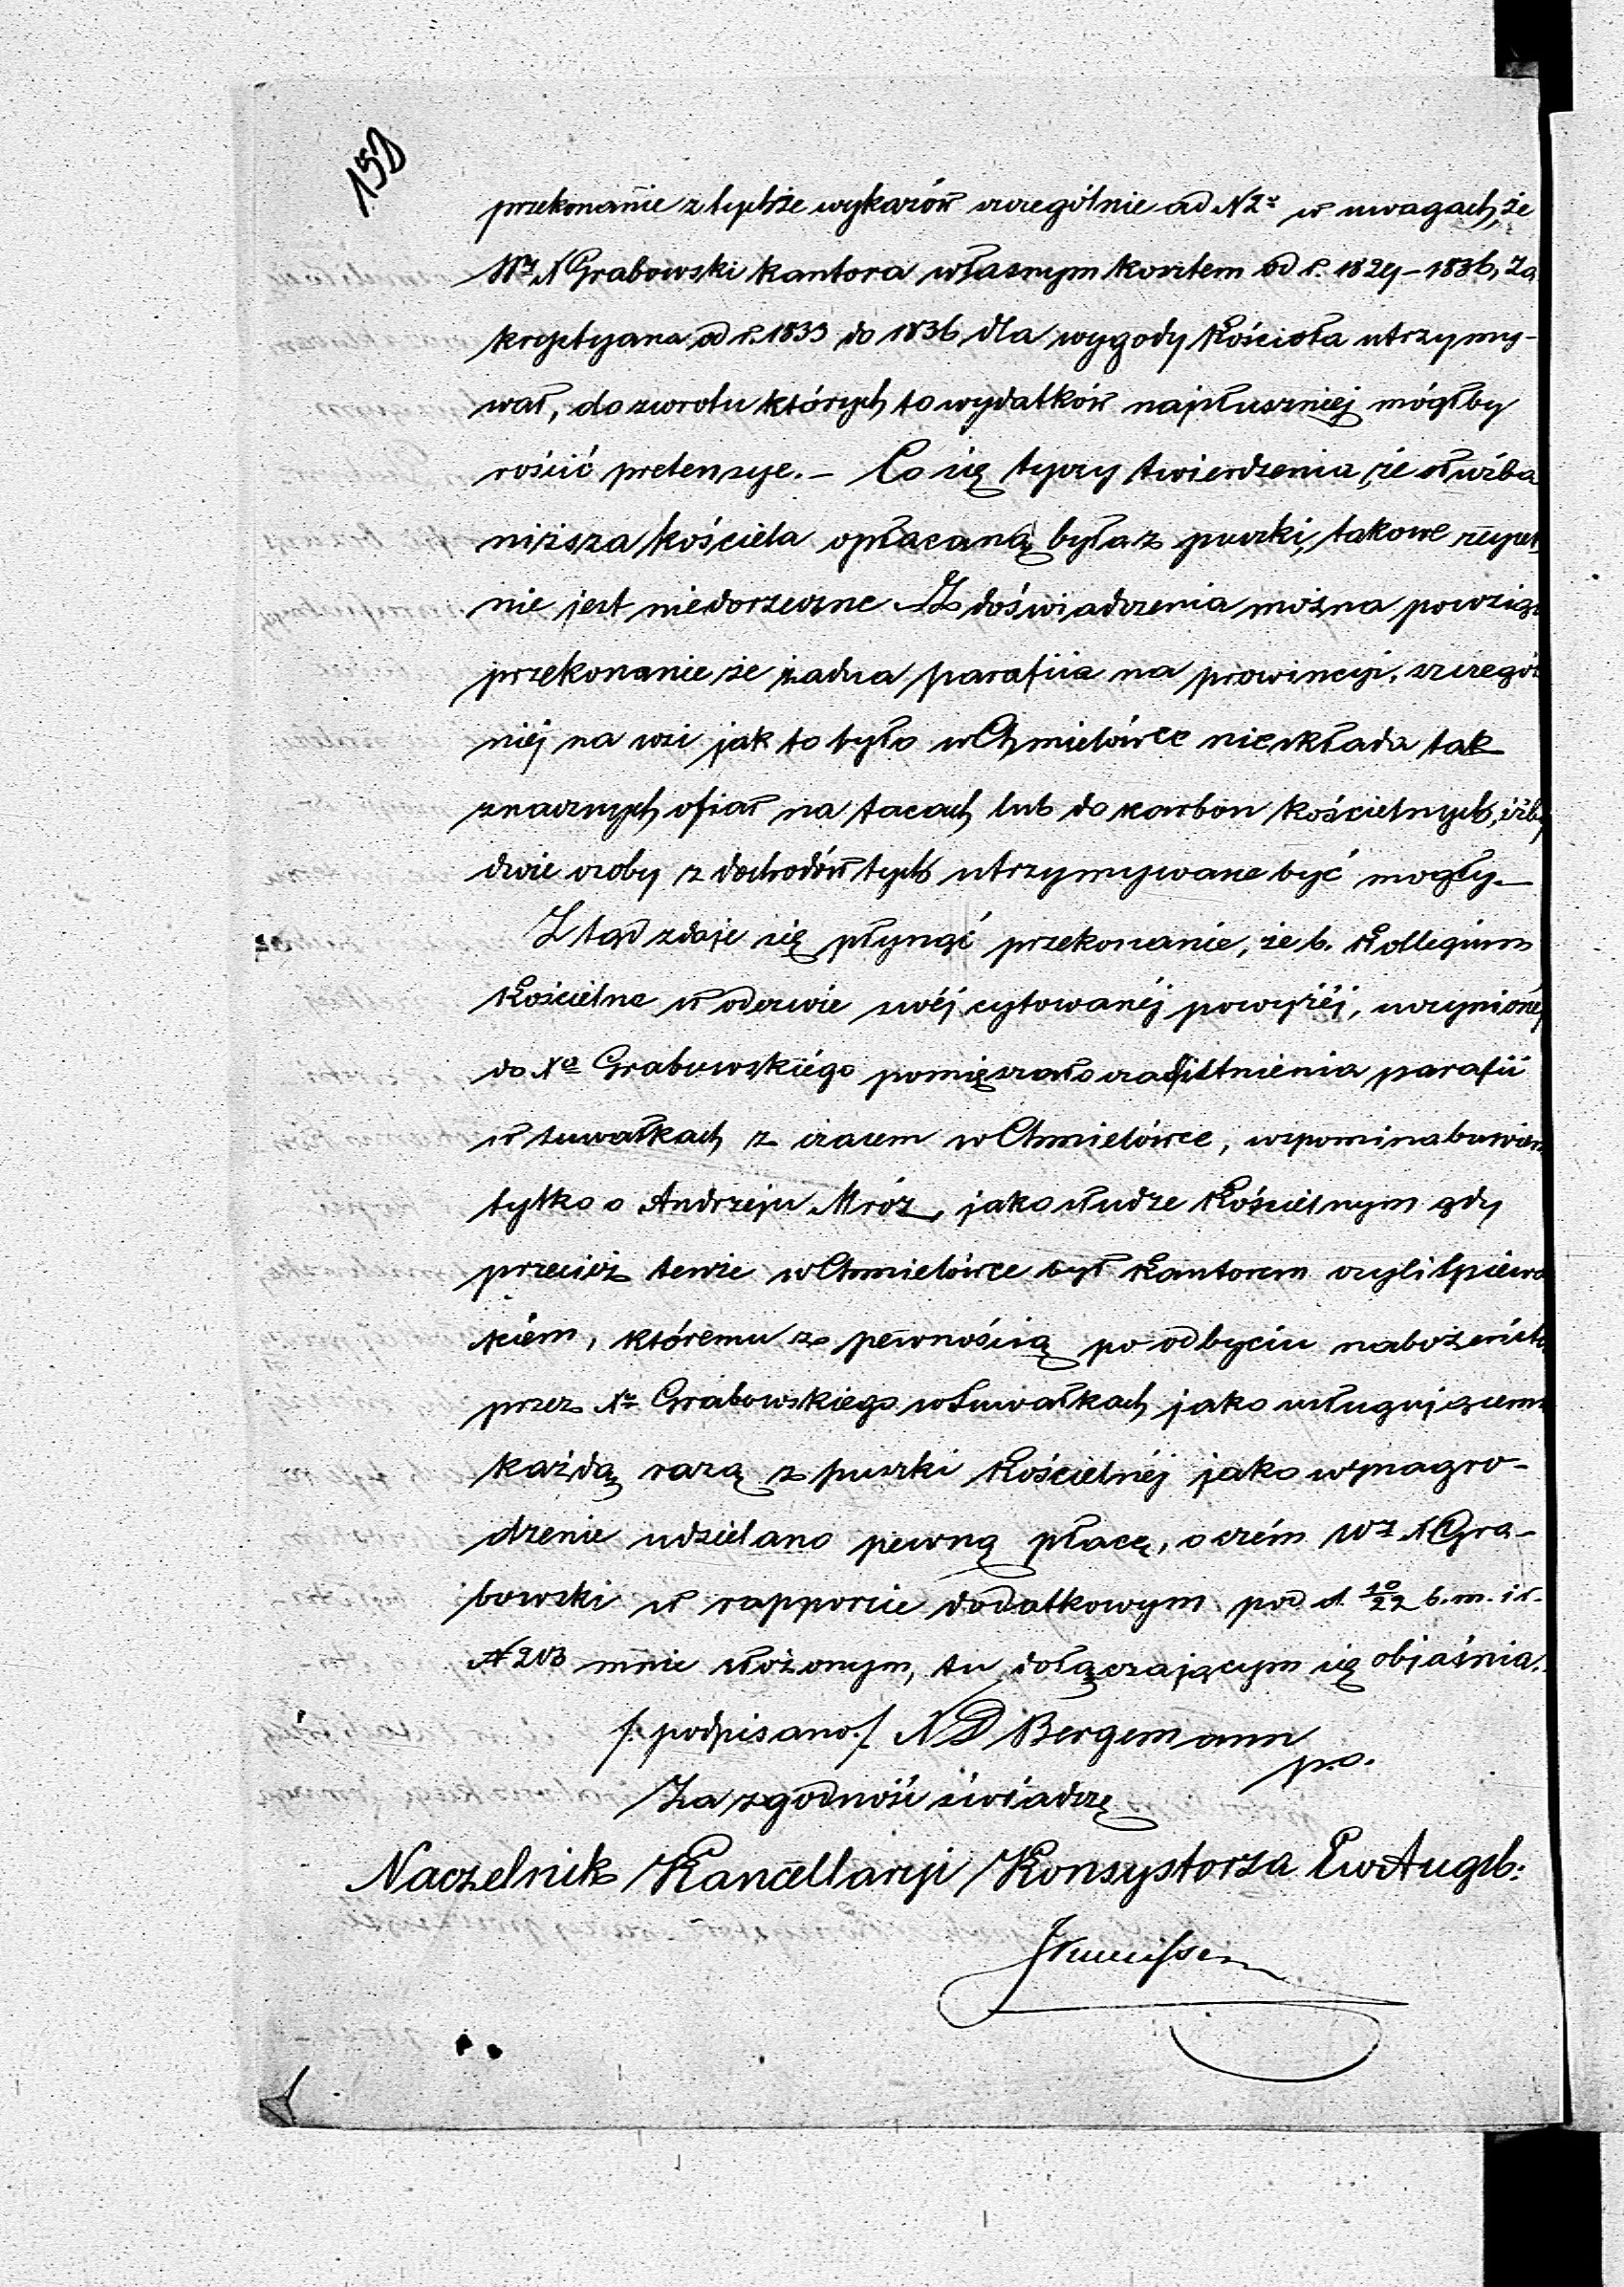 152
przekonanie z tychże wykazów szczególnie ad N 2º w uwagach, że
Wz X Grabowski kantora własnym kosztem od r. 1829 – 1836, Za
krystyana od r. 1833 do 1836 dla wygody Kościoła utrzymy-
wał, do zwrotu których to wydatków najsłuszniej mógłby
rościć pretensye. – Co się tyczy twierdzenia, że służba
niższa kościela opłacaną była z puszki, takowe zupeł
nie jest niedorzeczne. Z doświadczenia można powziąć
przekonanie że żadna parafiia na prowincyi, szczegól
niéj na wsi jak to było w Chmielówce nie składa tak
znacznych ofiar na tacach lub do karbon kościelnych, iżby
dwie osoby z dochodów tych utrzymywane być mogły. –
Z tąd zdaje się płynąć przekonanie, że b. Kollegium
Kościelne w odezwie swéj cytowanéj powyżéj, uczynionéj
do Xa Grabowskiégo pomięszało czas istnienia parafii
w Suwałkach z czasem w Chmielówce, wspomina bowiem
tylko o Andrzeju Mróz, jako słudze Kościelnym gdy
przecież tenże w Chmielówce był Kantorem czyli Spiewa
kiém, któremu z pewnością po odbyciu nabożeństw
przez Xa Grabowskiego w Suwałkach jako usługującemu
każdą razą z puszki Kościelnéj jako wynagro-
dzenie udzielano pewną płacę, o czém Wz X Gra-
bowski w rapporcie dodatkowym pod d. 10/22 b. m. i r.
N 203 mnie złożonym, tu dołączającym się objaśnia.
/: podpisano :/ ND Bergemann
p.o.
Za zgodność świadczę
Naczelnik Kancellaryi Konsystorza Ew Augsb: